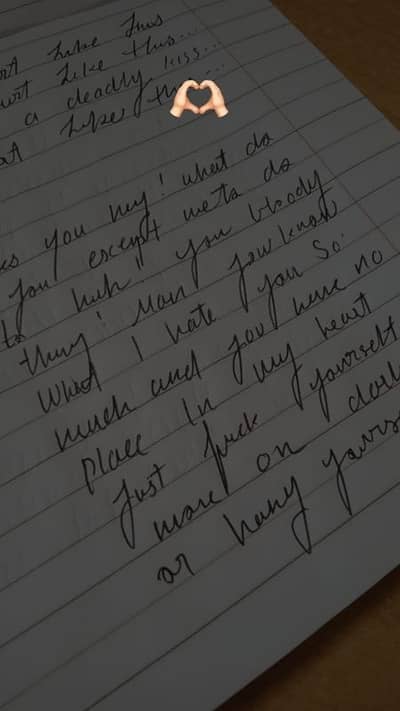 like this
like this...
a deadly kiss...
like
you my! what do
you except me to do
huh! you bloody
thing! Man you know
what I hate you so
much and you have no
place in my heart
Just fuck yourself
more on
or hang